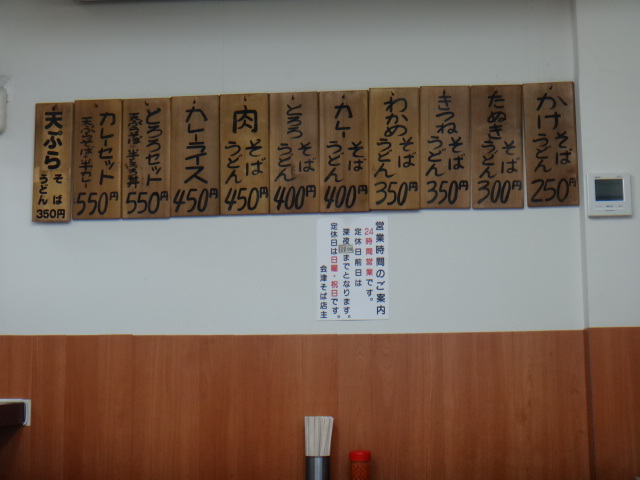 かけそば
うどん
250円
たぬきそば
うどん
300円
きつねそば
うどん
350円
わかめそば
うどん
350円
カレーそば
うどん
400円
とろろそば
うどん
400円
肉そば
うどん
450円
カレーライス
450円
とろろセット
550円
カレーセット
550円
天ぷらそば
うどん
350円
営業時間のご案内
24時間営業です。
定休日前日は
深夜までとなります。
定休日は日曜・祝日です。
会津そば店主